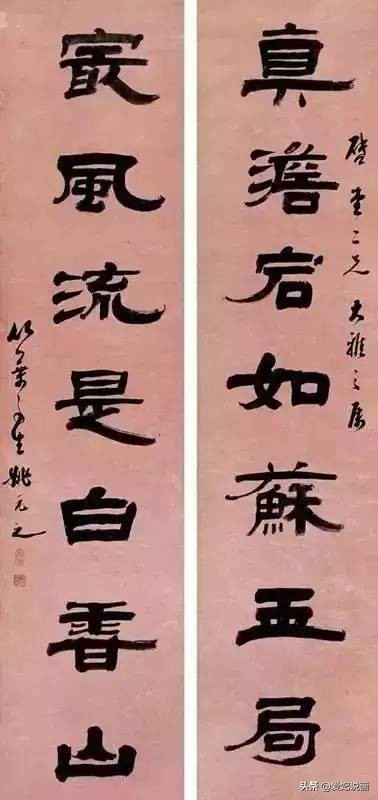 真澹宕如蘇玉局
啓堂二兄大雅之屬
冣風流是白香山
竹葉亭生姚元之
头条 @爱妃说画